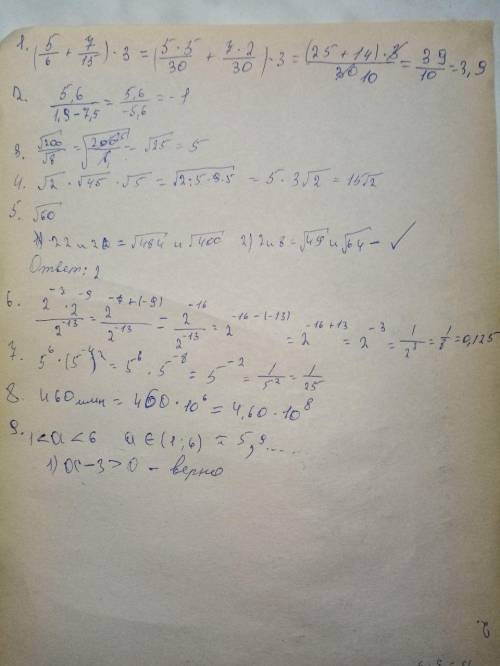 1. (5/6 + 7/15) · 3 = (5·5/30 + 7·2/30) · 3 = (25+14)·3/30 10 = 39/10 = 3,9
2. 5,6/1,9-7,5 = 5,6/-5,6 = -1
3. √200/√8 = √200 25/8 1 = √25 = 5
4. √2 · √45 · √5 = √2·5·9·5 = 5·3√2 = 15√2
5. √60
1) 22 и 20 = √484 и √400 2) 7 и 8 = √49 и √64 - ✓
Ответ: 2
6. 2^-7 · 2^-9/2^-13 = 2^-7+(-9)/2^-13 = 2^-16/2^-13 = 2^-16-(-13) = 2^-16+13 = 2^-3 = 1/2^3 = 1/8 = 0,125
7. 5^6 · (5^-4)^2 = 5^6 · 5^-8 = 5^-2 = 1/5^2 = 1/25
8. 460 млн = 460·10^6 = 4,60·10^8
9. 1<a<6 a ∈ (1;6) = 5,9....
1) a-3>0 - верно
2.